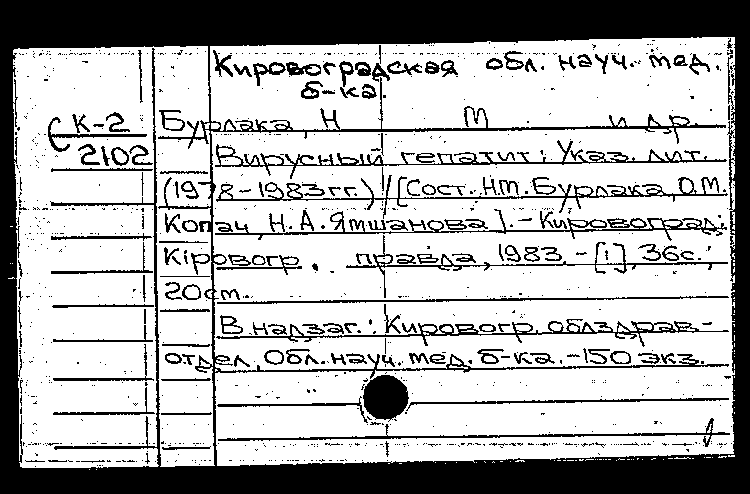 Кировоградская обл. науч. мед.
б-ка.
К-2 Бурлака, Н М и др.
С2102 Вирусный гепатит: Указ. лит.
(1978-1983гг.) / [Сост. Н.М. Бурлака, О.М.
Копач, Н.А. Ямшанова]. - Кировоград:
Кіровогр. правда, 1983. - [1], 36с.;
20см.
В надзаг.: Кировогр. облздрав-
отдел, Обл. науч. мед. б-ка. - 150 экз.